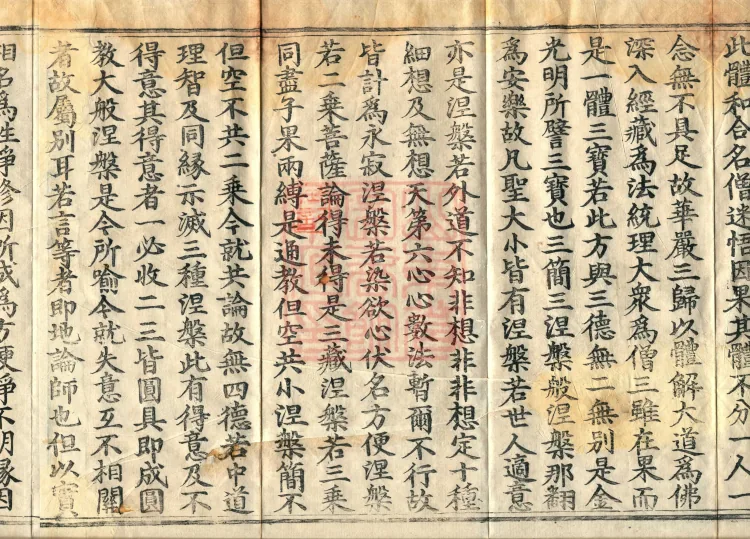 此體和合名僧迷悟因果其體不分一人一
念無不具足故華嚴三歸以體解大道爲佛
深入經藏爲法統理大衆爲僧三雖在果而
是一體三寶若此方與三德無二無別是金
光明所譬三寶也三簡三涅槃般涅槃那翻
爲安樂故凡聖大小皆有涅槃若世人適意
亦是涅槃若外道不知非想非非想定十種
細想及無想天第六心心數法暫爾不行故
皆計爲永寂涅槃若染欲心伏名方便涅槃
若二乗菩薩論得未得是三藏涅槃若三乗
同盡子果兩縛是通教但空共小涅槃簡不
但空不共二乗今就共論故無四德若中道
理智及同縁示滅三種涅槃此有得意及不
得意其得意者一必收二三皆圓具即成圓
教大般涅槃是今所喻今就失意互不相關
者故屬別耳若言等者即地論師也但以實
相名爲性淨修因所成爲方便淨不明縁因